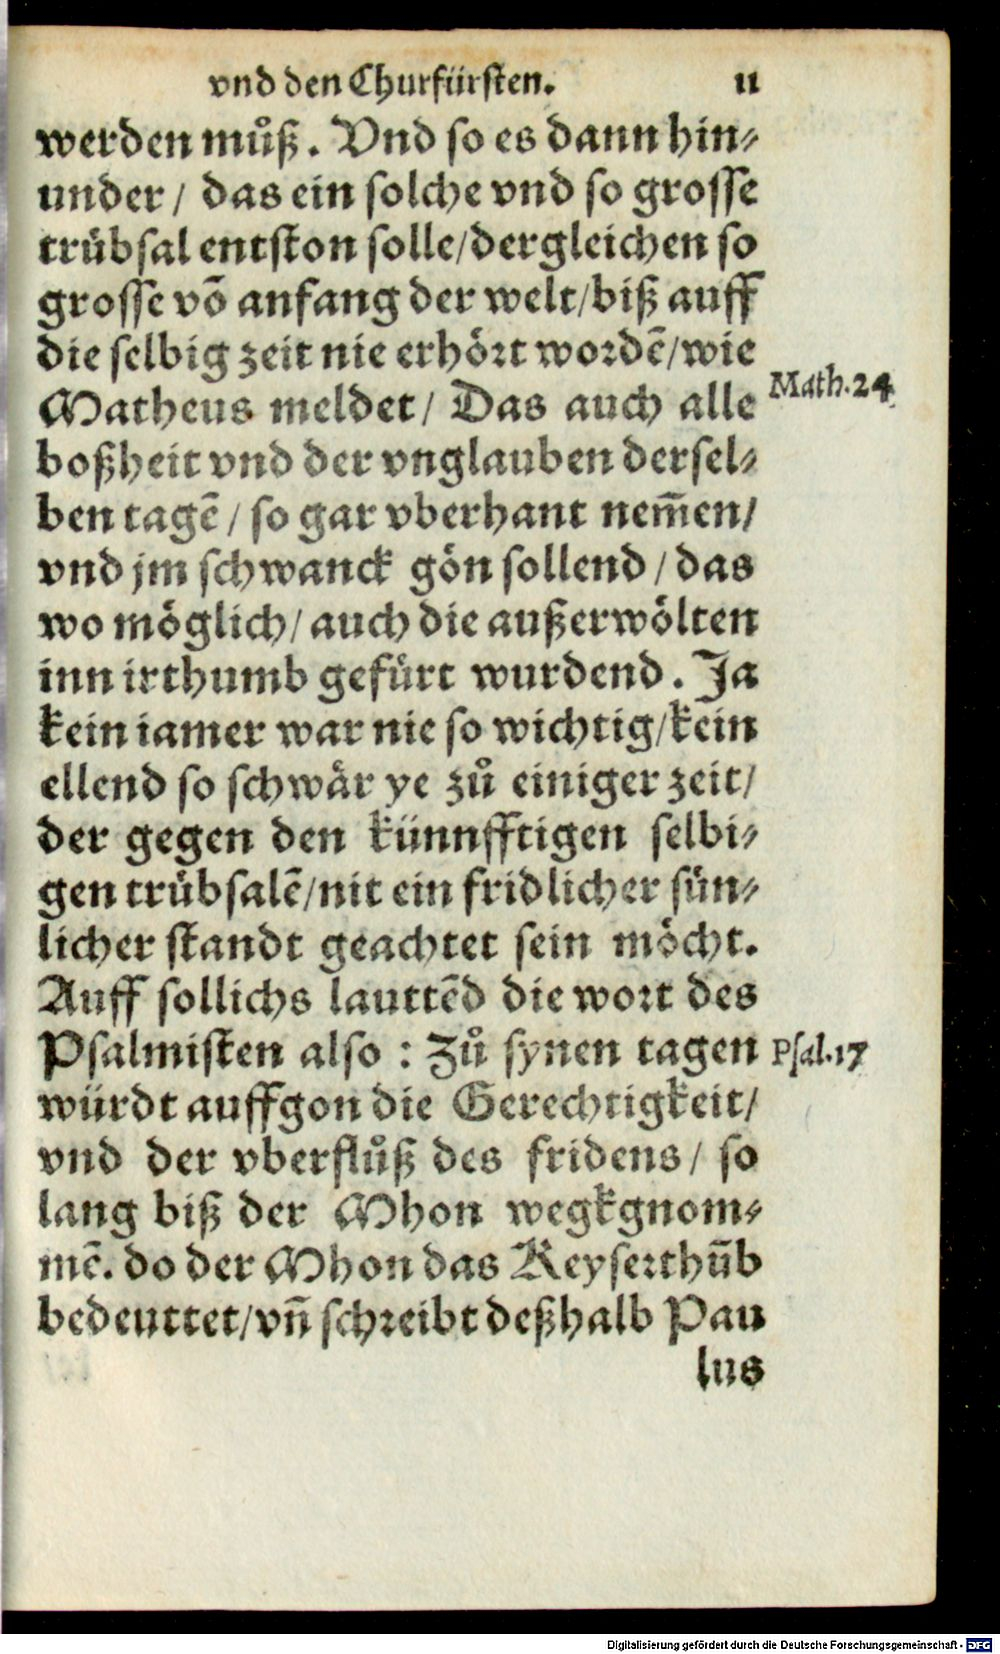 vnd den Churfürsten. 11
werden muͦß. Vnd so es dann hin⸗
under / das ein solche vnd so grosse
truͤbsal entston solle/dergleichen so
grosse võ anfang der welt/biß auff
die selbig zeit nie erhoͤrt wordẽ/wie
Math.24
Matheus meldet / Das auch alle
boßheit vnd der vnglauben dersel⸗
ben tagẽ / so gar vberhant nem̃en/
vnd jm schwanck goͤn sollend / das
wo moͤglich/ auch die außerwoͤlten
inn irthumb gefuͤrt wurdend. Ja
kein iamer war nie so wichtig/kein
ellend so schwaͤr ye zuͦ einiger zeit/
der gegen den künnfftigen selbi⸗
gen truͤbsalẽ/nit ein fridlicher suͤn⸗
licher standt geachtet sein moͤcht.
Auff sollichs lauttẽd die wort des
Psalmisten also : Zuͦ synen tagen
Psal.17
würdt auffgon die Gerechtigkeit/
vnd der vberfluͦß des fridens / so
lang biß der Mhon wegkgnom⸗
mẽ. do der Mhon das Keyserthũb
bedeuttet/vñ schreibt deßhalb Pau
lus
Digitalisierung gefördert durch die Deutsche Forschungsgemeinschaft - DFG